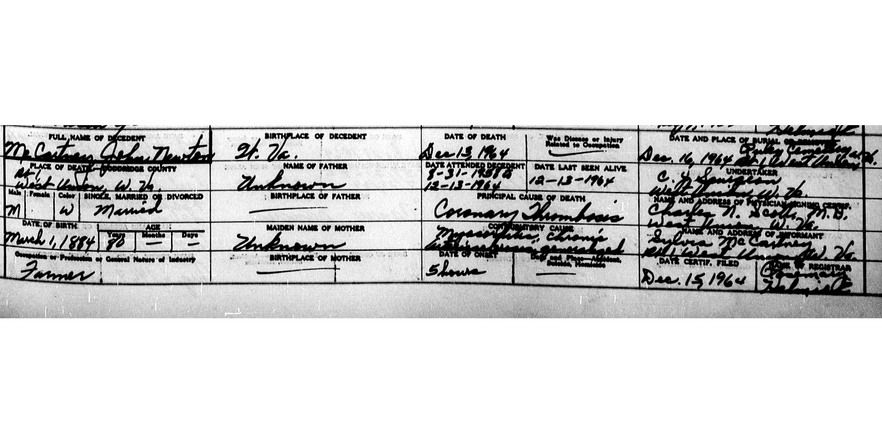 FULL NAME OF DECEDENT
McCartney, John Newton
PLACE OF DEATH, DODDRIDGE COUNTY
West Union, W. Va.
Male Female Color SINGLE, MARRIED OR DIVORCED
M W Married
DATE OF BIRTH AGE
Years Months Days
March 1, 1884 80 — —
Occupation or Profession or General Nature of Industry
Farmer
BIRTHPLACE OF DECEDENT
W. Va.
NAME OF FATHER
Unknown
BIRTHPLACE OF FATHER
MAIDEN NAME OF MOTHER
Unknown
BIRTHPLACE OF MOTHER
DATE OF DEATH
Was Disease or Injury
Related to Occupation
Dec. 13, 1964
DATE ATTENDED DECEDENT DATE LAST BEEN ALIVE
12-13-1964 12-13-1964
PRINCIPAL CAUSE OF DEATH
Coronary Thrombosis
CONTRIBUTORY CAUSE
Myocarditis, chronic
generalized
DATE OF ONSET
5 hours
DATE AND PLACE OF BURIAL
Dec. 16, 1964 West Union
UNDERTAKER
West Union W. Va.
NAME AND ADDRESS OF PHYSICIAN SIGNING CERTIF.
Charles N. Scott, M.D.
West Union W. Va.
NAME AND ADDRESS OF INFORMANT
Sylvia McCartney
West Union W. Va.
DATE CERTIF. FILED REGISTRAR
Dec. 15, 1964